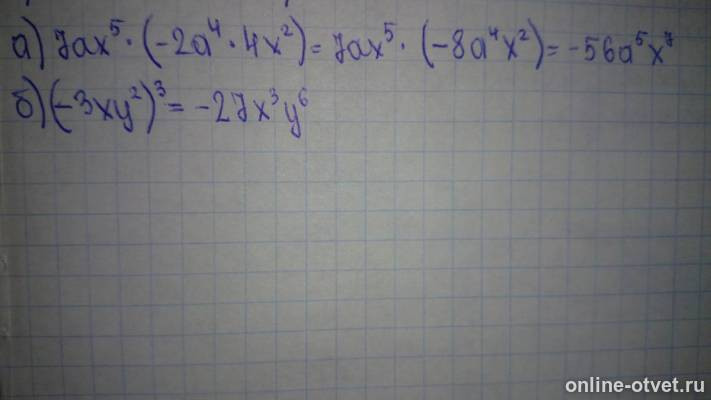 а) 7ax⁵·(-2a⁴·4x²)= 7ax⁵·(-8a⁴x²)= -56a⁵x⁷
б) (-3xy²)³= -27x³y⁶
online-otvet.ru